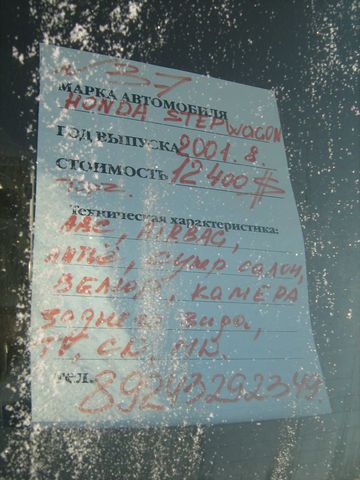 № 137
МАРКА АВТОМОБИЛЯ
HONDA STEPWAGON
ГОД ВЫПУСКА 2001.8.
СТОИМОСТЬ 12400$
торг
Техническая характеристика:
АБС, AIRBAG,
литьё, супер салон,
ВЕЛЮР, КАМЕРА
заднего вида,
TV, CD, MD.
тел. 89243292349